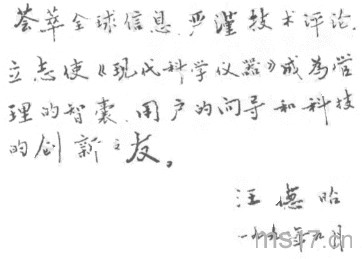 荟萃全球信息，严谨技术评论，
立志使《现代科学仪器》成为管
理的智囊、用户的问导和科技
的创新之友。
汪德昭
一九九〇年九月